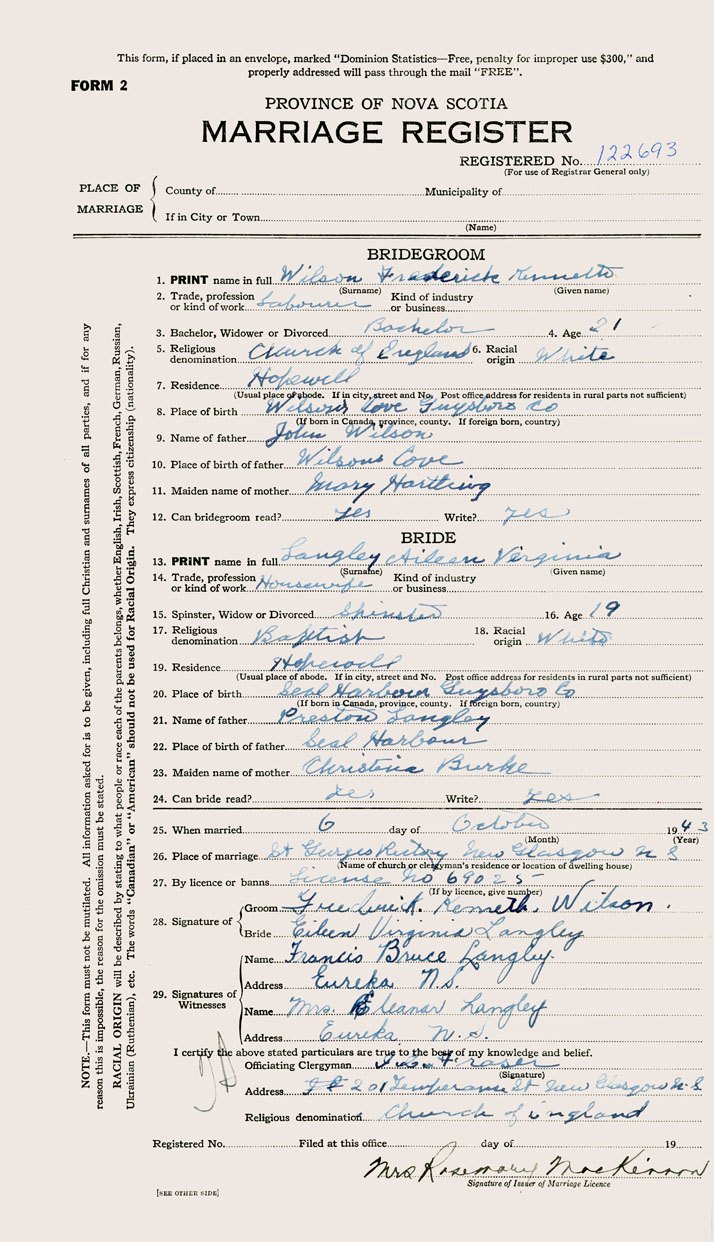 This form, if placed in an envelope, marked "Dominion Statistics—Free, penalty for improper use $300," and
properly addressed will pass through the mail "FREE".
FORM 2
PROVINCE OF NOVA SCOTIA
MARRIAGE REGISTER
REGISTERED No. 122693
(For use of Registrar General only)
PLACE OF MARRIAGE
County of Municipality of
If in City or Town
(Name)
BRIDEGROOM
1. PRINT name in full Wilson Frederick Kenneth
(Surname) (Given name)
2. Trade, profession or kind of work Labourer Kind of industry or business
3. Bachelor, Widower or Divorced Bachelor 4. Age 21
5. Religious denomination Church of England 6. Racial origin White
7. Residence Hopewell
(Usual place of abode. If in city, street and No. Post office address for residents in rural parts not sufficient)
8. Place of birth Wilsons Cove Guysboro Co
(If born in Canada, province, county. If foreign born, country)
9. Name of father John Wilson
10. Place of birth of father Wilsons Cove
11. Maiden name of mother Mary Hartling
12. Can bridegroom read? yes Write? yes
BRIDE
13. PRINT name in full Langley Aileen Virginia
(Surname) (Given name)
14. Trade, profession or kind of work Housewife Kind of industry or business
15. Spinster, Widow or Divorced Spinster 16. Age 19
17. Religious denomination Baptist 18. Racial origin White
19. Residence Hopewell
(Usual place of abode. If in city, street and No. Post office address for residents in rural parts not sufficient)
20. Place of birth Seal Harbour Guysboro Co
(If born in Canada, province, county. If foreign born, country)
21. Name of father Preston Langley
22. Place of birth of father Seal Harbour
23. Maiden name of mother Christina Burke
24. Can bride read? Yes Write? Yes
25. When married 6 day of October 1943
(Month) (Year)
26. Place of marriage St Georges Rectory New Glasgow N S
(Name of church or clergyman's residence or location of dwelling house)
27. By licence or banns License No 69025
(If by licence, give number)
28. Signature of
Groom Frederick Kenneth Wilson.
Bride Eileen Virginia Langley
29. Signatures of Witnesses
Name Francis Bruce Langley.
Address Eureka N.S.
Name Mrs. Eleanar Langley
Address Eureka N.S.
I certify the above stated particulars are true to the best of my knowledge and belief.
Officiating Clergyman Fraser
(Signature)
Address 201 Temperance St New Glasgow N.S.
Religious denomination Church of England
Registered No. Filed at this office day of 19
Mrs Rosemary MacKinnon
Signature of Issuer of Marriage Licence
[SEE OTHER SIDE]
NOTE.—This form must not be mutilated. All information asked for is to be given, including full Christian and surnames of all parties, and if for any
reason this is impossible, the reason for the omission must be stated.
RACIAL ORIGIN will be described by stating to what people or race each of the parents belongs, whether English, Irish, Scottish, French, German, Russian,
Ukrainian (Ruthenian), etc. The words "Canadian" or "American" should not be used for Racial Origin. They express citizenship (nationality).